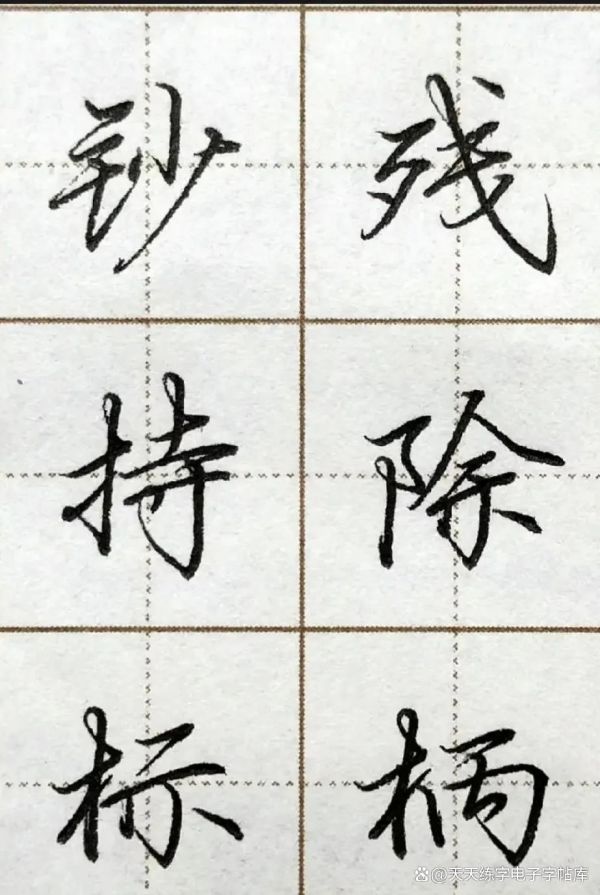 钞 残
持 除
标 柄
@天天练字电子字帖库